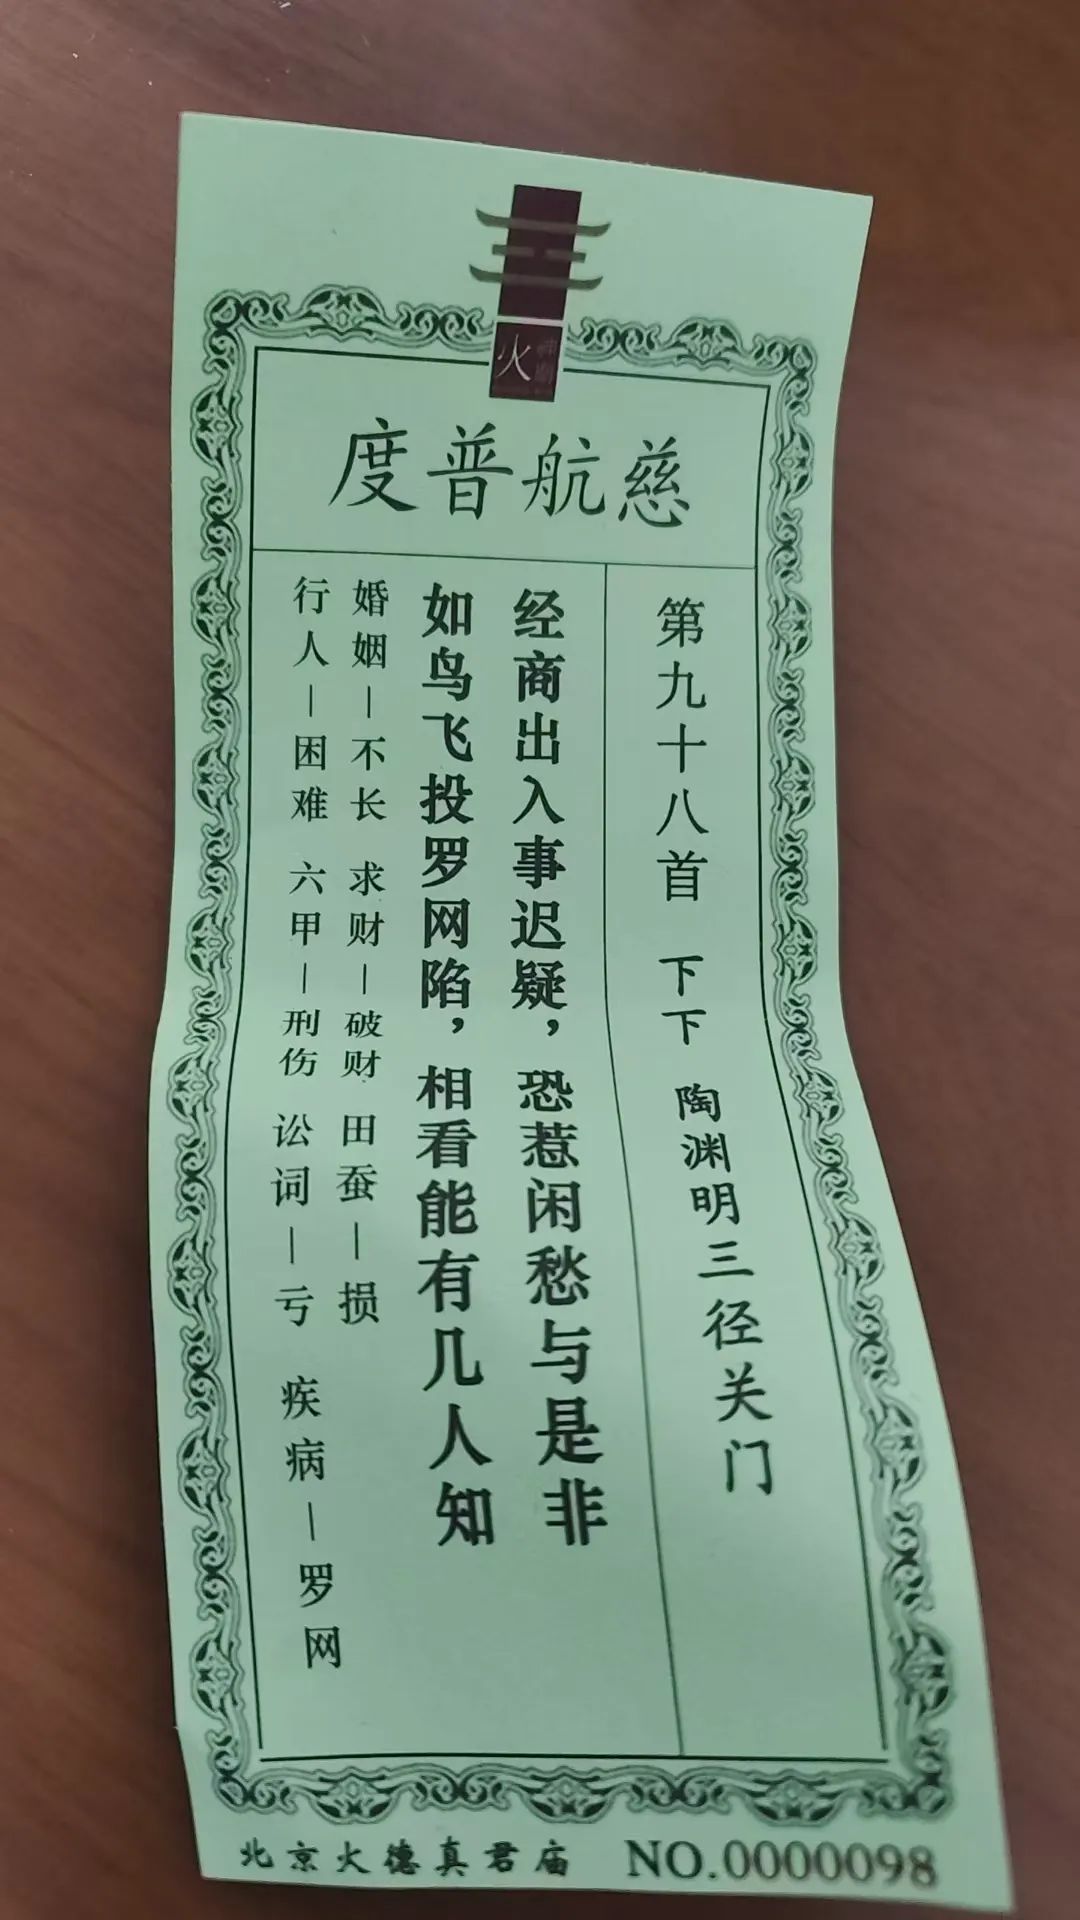 火
慈航普度
第九十八首 下下 陶渊明三径关门
经商出入事迟疑，恐惹闲愁与是非
如鸟飞投罗网陷，相看能有几人知
婚姻—不长 求财—破财 田蚕—损
行人—困难 六甲—刑伤 讼词—亏 疾病—罗网
北京火德真君庙 NO.0000098